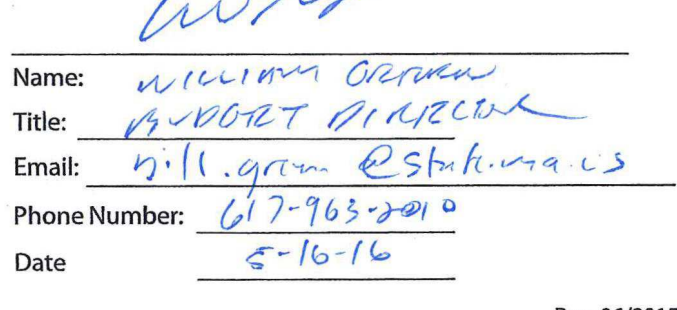 Name: WILLIAM
Title: BUDGET DIRECTOR
Email: bill.green@state.ma.us
Phone Number: 617-963-2010
Date 5-16-16